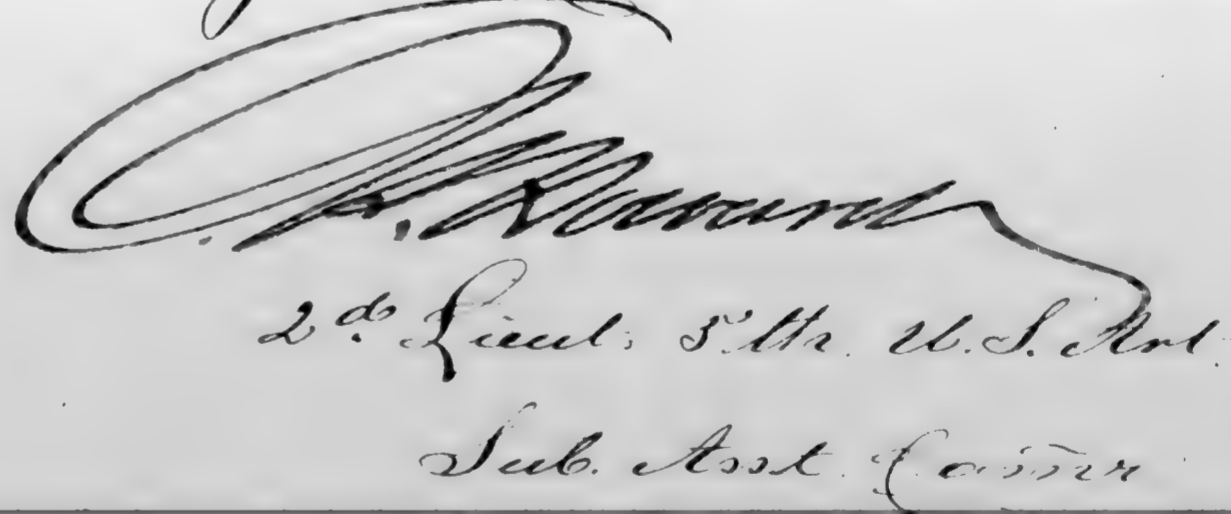 2d. Lieut. 5th. U.S. Art.
Sub. Asst. Comr